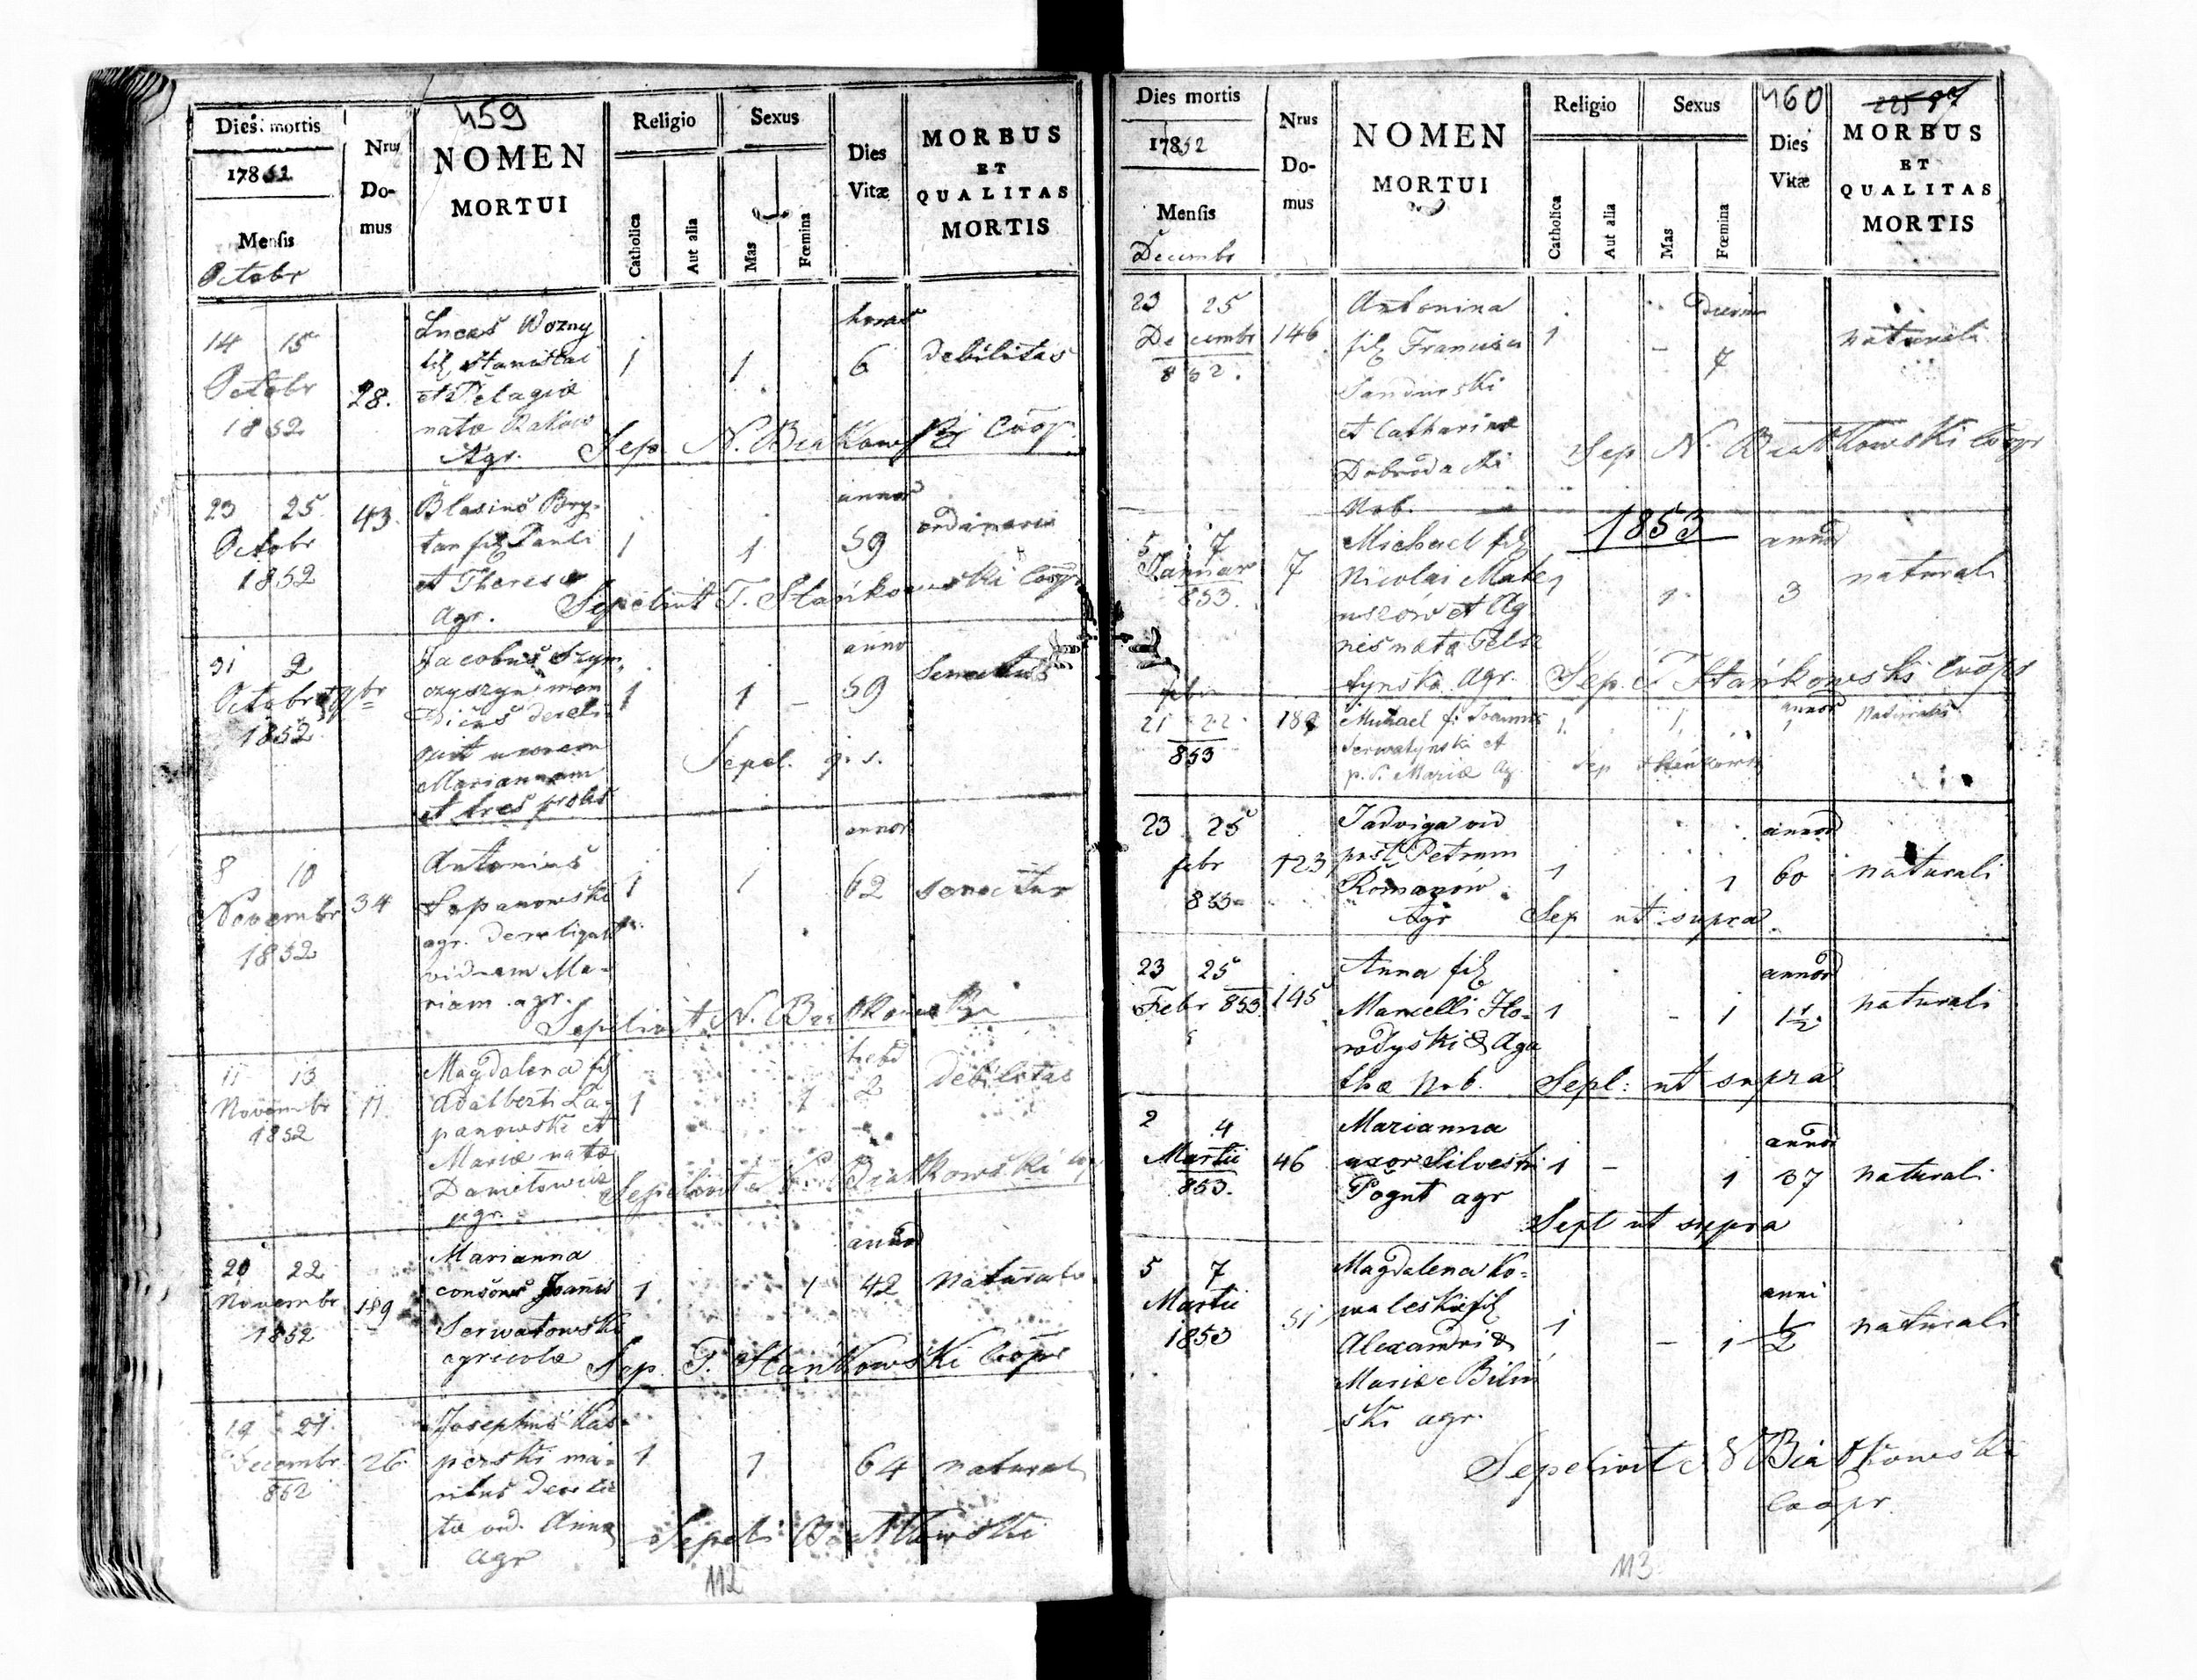 459
Dies mortis
17852
Mensis
Octobr
Nrus
Do-
mus
NOMEN
MORTUI
Religio
Catholica
Aut alia
Sexus
Mas
Fœmina
Dies
Vitæ
MORBUS
ET
QUALITAS
MORTIS
14 15
Octobr
1852
28.
Lucas Wozny
fil Stanislai
et Pelagiæ
natæ
Agr.
1 1
horas
6
debilitas
Sep. N. Białkowski Coop.
23 25
Octobr
1852
43.
Blasius Bry-
tan fil Pauli
et Theresæ
Agr.
1 1
annor
59
ordinaria
Sepelivit T. Stańkowski Coop
31 2
Octobr 9br
1852
Jacobus Szym
czyszyn men
dicus dereli
quit uxorem
Mariannam
et tres proles
1 1 –
annor
59
Senectus
Sepel. q. s.
8 10
Novembr
1852
34
Antonius
Łopanowski
agr. dereliquit
viduam Ma-
riam agr.
1 1
annor
62
senectus
Sepelivit N. Białkowski
11 13
Novembr
1852
11
Magdalena fil
Adalberti Ła-
panowski et
Mariæ natæ
Danielowicz
agr.
1 1
2
debilitas
Sepelivit N. Białkowski
20 22
Novembr
1852
189
Marianna
consors Joannis
Serwatowski
agricolæ
1 1
annor
42
naturalis
Sep. T. Stańkowski Coopr
19 21
Decembr
852
26
Josephus Kas-
perski ma-
ritus derelic
ta vid. Anna
agr
1 1
64
natural
Sepeli Białkowski
112
460
Dies mortis
17852
Mensis
Decembr
Nrus
Do-
mus
NOMEN
MORTUI
Religio
Catholica
Aut alia
Sexus
Mas
Fœmina
Dies
Vitæ
MORBUS
ET
QUALITAS
MORTIS
23 25
Decembr
852.
146
Antonina
fil Francisci
Sandurski
et Catharinæ
Dobrodacki
Nob.
1 –
dierum
7
naturali
Sep N. Białkowski Coopr
1853
5 7
Januar
853.
7
Michael fil
Nicolai Mate
uszów et Ag
nis nata Felsz
tyńska Agr.
1 1
annor
3
naturali
Sep. T Stańkowski Coopr
febr
21 22
853
182
Michael f. Joannis
Serwatynski et
p. d. Mariæ Ag.
1. 1.
annor
1
Naturalis
Sep Stańkowski
23 25
febr
853
123
Jadviga vid
post Petrum
Romanow
Agr
1 1
annor
60
naturali
Sep ut supra
23 25
Febr 853
145
Anna fil
Marcelli Ho-
rodyski & Aga
thæ Nob.
1 – 1
annor
1½
naturali
Sepl: ut supra
2 4
Martii
853.
46
Marianna
uxor Silvestri
Pognt agr
1 – 1
annor
37
naturali
Sepl ut supra
5 7
Martii
1853
51
Magdalena Ko-
waleski fil
Alexandri &
Mariæ Bilin
ski agr.
1 – 1
anni
½
naturali
Sepelivit N Białkowski
Coopr.
113